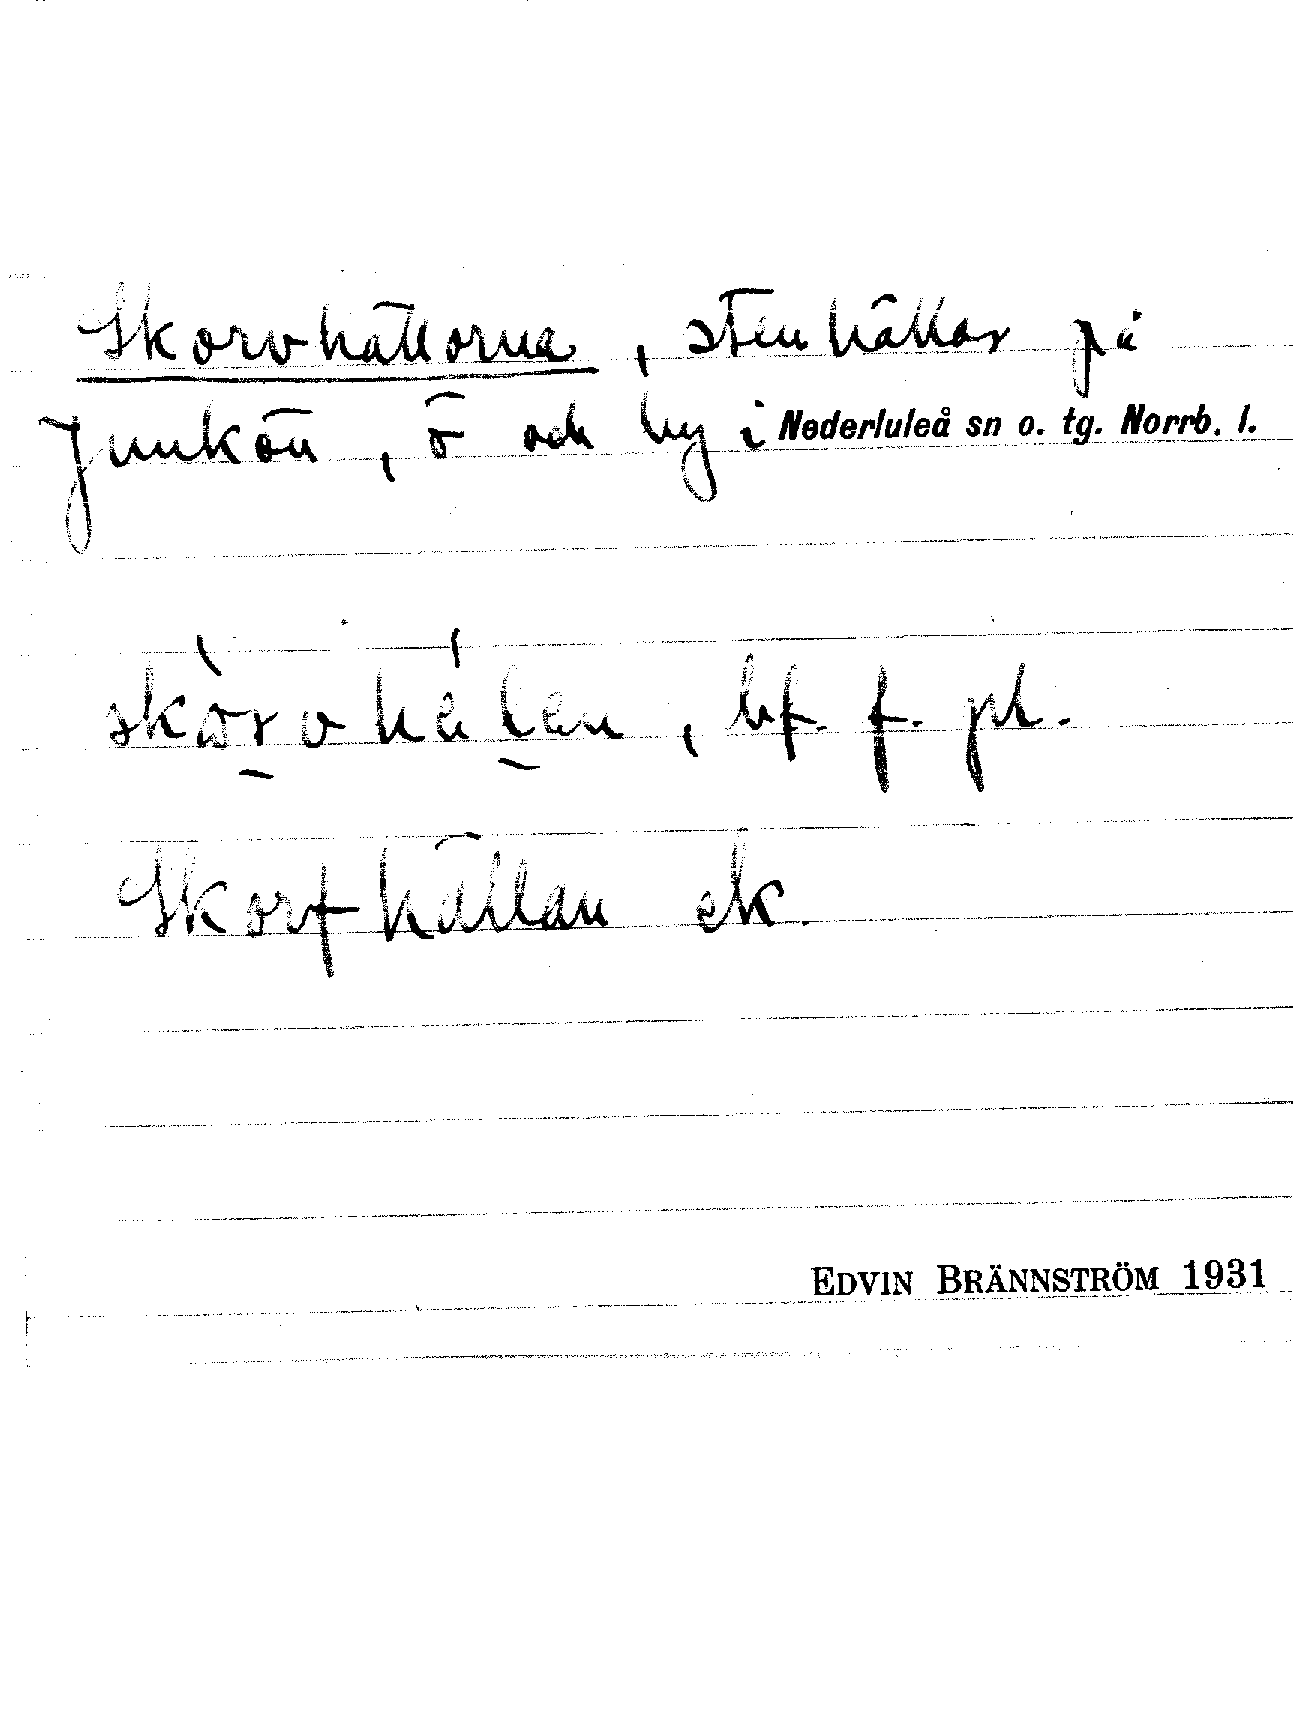 Skorvhällorna, stenhällar på
Junkön, ö och by i Nederluleå sn o. tg. Norrb. l.
bf. f. pl.
Skorfhällan ek.
EDVIN BRÄNNSTRÖM 1931